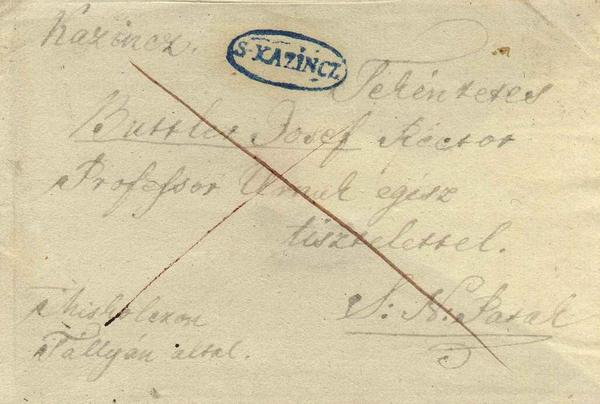 Kazincz.
S-KAZINCZ
Tekéntetes
Buttler Josef Réctor
Professor Urnak egész
tisztelettel.
S: N: Patak
Miskolczon
Tállyán által.